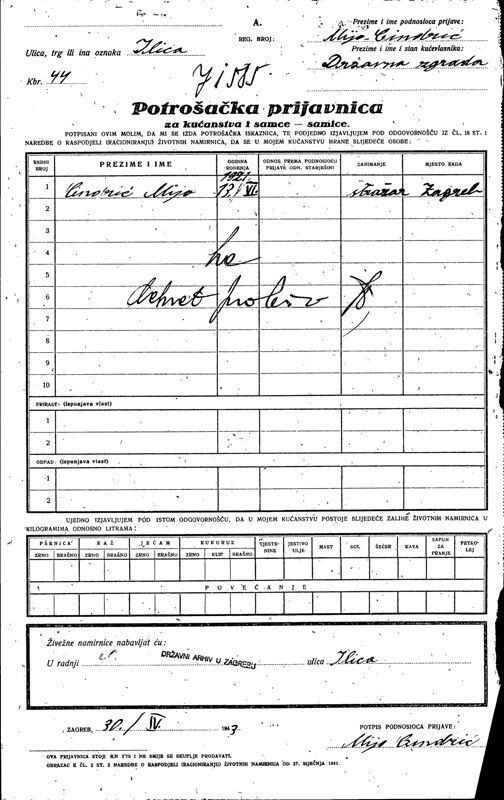 A.
REG. BROJ:
Prezime i ime podnosioca prijave:
Mijo Cindrić
Prezime i ime i stan kućevlasnika:
Državna zgrada
Ulica, trg ili ina oznaka Ilica
Kbr. 44
Potrošačka prijavnica
za kućanstva i samce — samice.
POTPISANI OVIM MOLIM, DA MI SE IZDA POTROŠAČKA ISKAZNICA, TE PODJEDNO IZJAVLJUJEM POD ODGOVORNOŠĆU IZ ČL. 18 ST. 1
NAREDBE O RASPODJELI (RACIONIRANJU) ŽIVOTNIH NAMIRNICA, DA SE U MOJEM KUĆANSTVU HRANE SLIJEDEĆE OSOBE:
REDNI BROJ PREZIME I IME GODINA ROĐENJA ODNOS PREMA PODNOSIOCU PRIJAVE ODN. STARJEŠINI ZANIMANJE MJESTO RADA
1 Cindrić Mijo 1921 13. VI. stražar Zagreb
2
3
4
5
6
7
8
9
10
PRIRAST: (ispunjava vlast)
1
2
ODPAD: (ispunjava vlast)
1
2
UJEDNO IZJAVLJUJEM POD ISTOM ODGOVORNOŠĆU, DA U MOJEM KUĆANSTVU POSTOJE SLIJEDEĆE ZALIHE ŽIVOTNIH NAMIRNICA U
KILOGRAMIMA ODNOSNO LITRAMA:
PŠENICA RAŽ JEČAM KUKURUZ TJESTENINE JESTIVO ULJE MAST SOL ŠEĆER KAVA SAPUN ZA PRANJE PETROLEJ
ZRNO BRAŠNO ZRNO BRAŠNO ZRNO BRAŠNO ZRNO KLIP BRAŠNO
POVEĆANJE
Živežne namirnice nabavljat ću:
U radnji DRŽAVNI ARHIV U ZAGREBU ulica Ilica
ZAGREB, 30./IV. 1943.
POTPIS PODNOSIOCA PRIJAVE:
Mijo Cindrić
OVA PRIJAVNICA STOJI KN 1'75 I NE SMIJE SE SKUPLJE PRODAVATI.
OBRAZAC K ČL. 2 ST. 3 NAREDBE O RASPODJELI (RACIONIRANJU) ŽIVOTNIH NAMIRNICA OD 27. SIJEČNJA 1941.